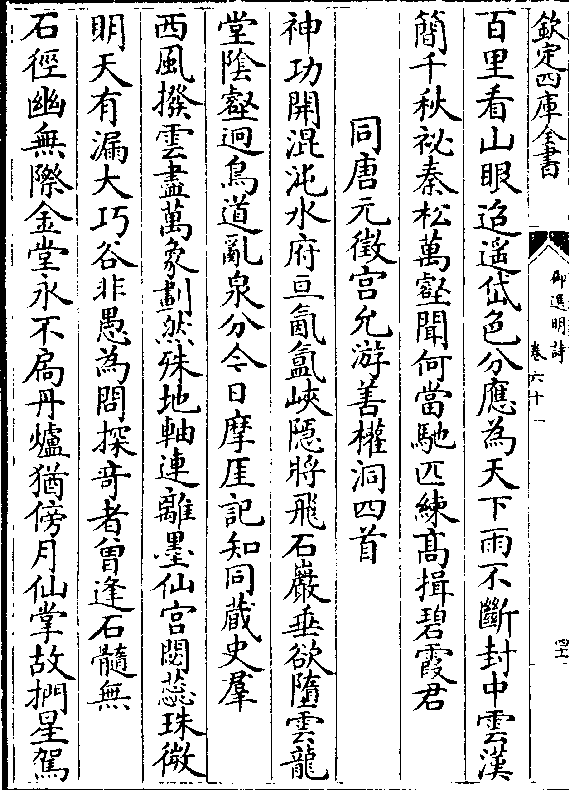 欽定四庫全書
御選明詩
卷六十一
四二
百里看山眼迢遥岱色分應為天下雨不斷封中雲漢
簡千秋祕秦松萬壑聞何當馳匹練髙揖碧霞君
同唐元徵宫允游善權洞四首
神功開混沌水府亘氤氲峽隱將飛石巖垂欲墮雲龍
堂陰壑迥鳥道亂泉分今日摩厓記知同藏史羣
西風撥雲盡萬象劃然殊地軸連離墨仙宫閟蕊珠微
明天有漏大巧谷非愚為問探竒者曽逢石髓無
石徑幽無際金堂永不扃丹爐猶傍月仙掌故捫星駕